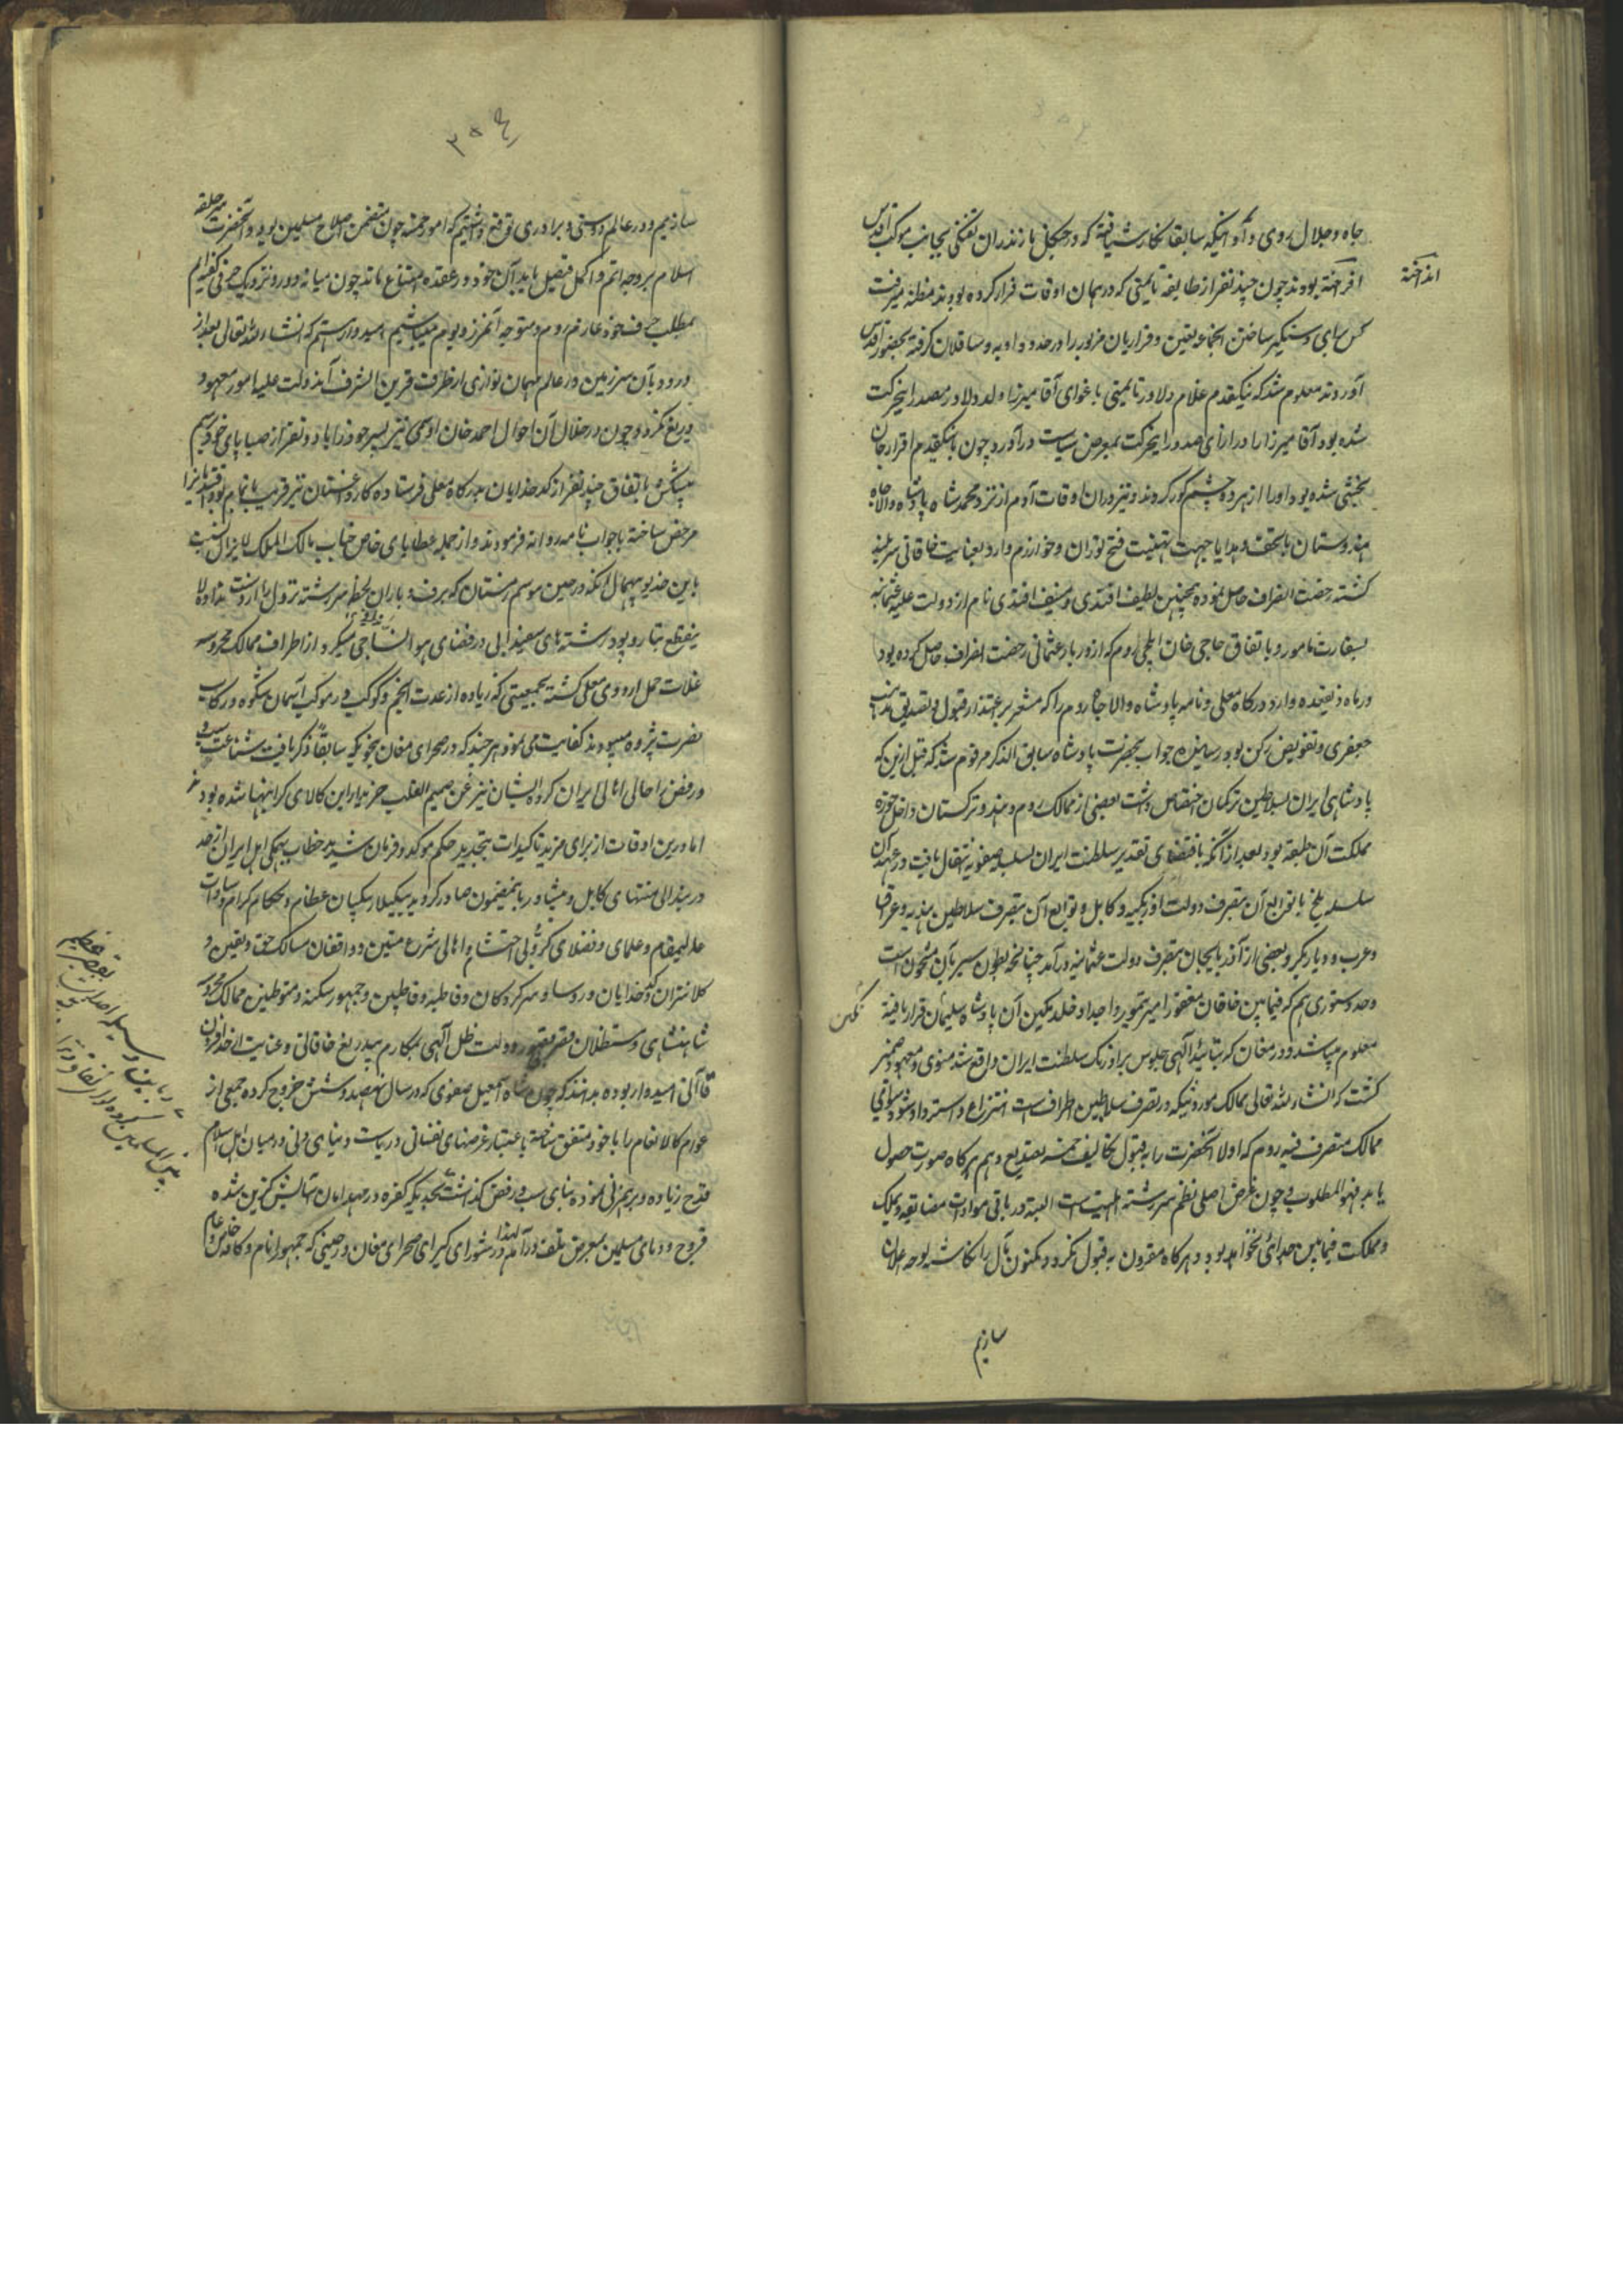 جاه و جلال روی داد اینکه سابقا نگارش یافته که در جنگل مازندران تفنگی بجانب موکب اقدس
انداخته
افراخته بودند چون چند نفر از طایفه تایمنی که در همان اوقات فرار کرده بودند مظنه میرفت
کس برای دستگیر ساختن انجماعه تعیین و فراریان مزبور را در حدود اوبه و ساقلان گرفته بحضور اقدس
آوردند معلوم شد که نیکقدم غلام دلاور تایمنی باغوای آقا میرزا ولد دلاور مصدر اینحرکت
شده بود آقا میرزا را در ازای صدور اینحرکت بمعرض سیاست درآورد چون با نیکقدم اقرار جان
بخشی شده بود او را از هر دو چشم کور کردند و نیز دران اوقات آدم از نزد محمد شاه پادشاه والاجاه
هندوستان با تحف و هدایا جهت تهنیت فتح توران و خوارزم وارد بعنایت خاقانی سربلند
گشته رخصت انصراف حاصل نموده همچنین لطیف افندی و منیف افندی نام از دولت علیه عثمانیه
بسفارت مامور و باتفاق حاجی خان ایلچی روم که از دربار عثمانی رخصت انصراف حاصل کرده بود
در ماه ذیقعده وارد درگاه معلی و نامه پادشاه والا جاه روم را که مشعر بر اعتذار قبول و تصدیق مذهب
جعفری و تفویض رکن بود رسانیده جواب بحضرت پادشاه سابق الذکر مرقوم شد که قبل ازین که
پادشاهی ایران بسلاطین ترکمان اختصاص داشت بعضی از ممالک روم و هند و ترکستان داخل حوزه
مملکت آن طبقه بود بعد از آنکه باقتضای تقدیر سلطنت ایران بسلسله صفویه انتقال یافت در عهد آن
سلسله بلخ با توابع آن بتصرف دولت اوزبکیه و کابل و توابع آن بتصرف سلاطین هندیه و عراق
و عرب و دیاربکر و بعضی از آذربایجان بتصرف دولت عثمانیه درآمد چنانچه بطون سیر بآن مشحونست
وحد و ستوری هم که فیمابین خاقان مغفور امیر تیمور و اجداد خلد مکین آن پادشاه سلیمان قرار یافته
نگین
معلوم میباشد و در مغان که بتائید الهی جلوس بر اورنگ سلطنت ایران واقع شد منوی و معهود ضمیر
گشت که انشاءلله تعالی ممالک موروثیکه در تصرف سلاطین اطراف است انتزاع و استرداد شود سوای
ممالک متصرف فیه روم که اولا آنحضرت را بقبول تکالیف خمسه تصدیع دهیم هرگاه صورت حصول
یابد فهو المطلوب و چون غرض اصلی نظم سررشته الهیت است البته در باقی مواد مضایقه و بملک
و مملکت فیمابین جدائی نخواهد بود و هرگاه مقرون بقبول نگردد مکنون بال را نگاشته لوحه اعلان
سازیم
۳۵۴
سازیم و در عالم دوستی و برادری توقع داشتیم که امور خمسه چون متضمن اصلاح مسلمین بود و آنحضرت سر حلقه
اسلام بر وجه اتم و اکمل فیصل یابد آن خود در عقده امتناع ماند چون میانه دور و نزدیک حرفی گفته‌ایم
بمطلب خود عازم روم و متوجه آنمرز و بوم میباشیم امید واریم که انشاءلله تعالی بعد از
ورود بآن سرزمین در عالم مهمان نوازی از طرف قرین الشرف آن دولت علیه امور معهود
دریغ نگردد و چون در خلال آن احوال احمد خان اوسمی نیز پسر خود را با دو نفر از صبایای خود برسم
پیشکش باتفاق چند نفر از کدخدایان بدرگاه معلی فرستاده کار داغستان نیز قریب باتمام بود
مرخص ساخته با جواب نامه روانه فرمودند و از جمله عطایای خاص جناب مالک الملک لایزال نسبت
باین خدیو بیهمال آنکه در عین موسم زمستان که برف و باران لحظه سررشته نزول را از دست نداده لا
ینقطع تار و پود رشته‌های سفید لالی در فضای هوا نساجی میکرد از اطراف ممالک محروسه
غلات حمل اردوی معلی گشته بجمعیتی که زیاده از عدت انجم و کوکب در موکب آسمان شکوه و رکاب
نصرت پژوه میبودند کفایت می‌نمود هر چند که در صحرای مغان بنحویکه سابقا ذکر یافت شناعت سب و
رفض را حالی اهالی ایران کرده ایشان نیز عن صمیم القلب خریدار این کالای گرانبها شده بودند
اما درین اوقات از برای مزید تاکیدات بتجدید حکم موکد و فرمان شدید خطاب بهمگی اهل ایران از حد
دربند الی منتهای کابل و پیشاور باینمضمون صادر گردید بیگلربیگیان عظام و حکام کرام و سادات
عالیمقام و علمای و فضلای ذوی الاحتشام و اهالی شرع متین و واقفان مسالک حق و یقین و
کلانتران و کدخدایان و روسا و سرکردگان و قاطبه قاطنین و جمهور سکنه و متوطنین ممالک محروسه
شاهنشاهی و مستظلان دولت ظل الهی بمکارم بیدریغ خاقانی و عنایت از حد افزون
قاآنی امیدوار بوده بدانند که چون شاه اسمعیل صفوی که در سال نهصد و شش خروج کرده جمعی از
عوام کالانعام را با خود متفق ساخته باعتبار غرضهای نفسانی و ریاست دنیای دنی در میان اهل اسلام
قدح زیاده و برهمزنی نموده بنای سب و رفض گذاشت بحدیکه کفره در مهد امان آسایش گزین شده
فروج و دمای مسلمین بمعرض تلف درآمد لهذا در شورای کبرای صحرای مغان در حینی که جمهور انام و کافه خاص و عام